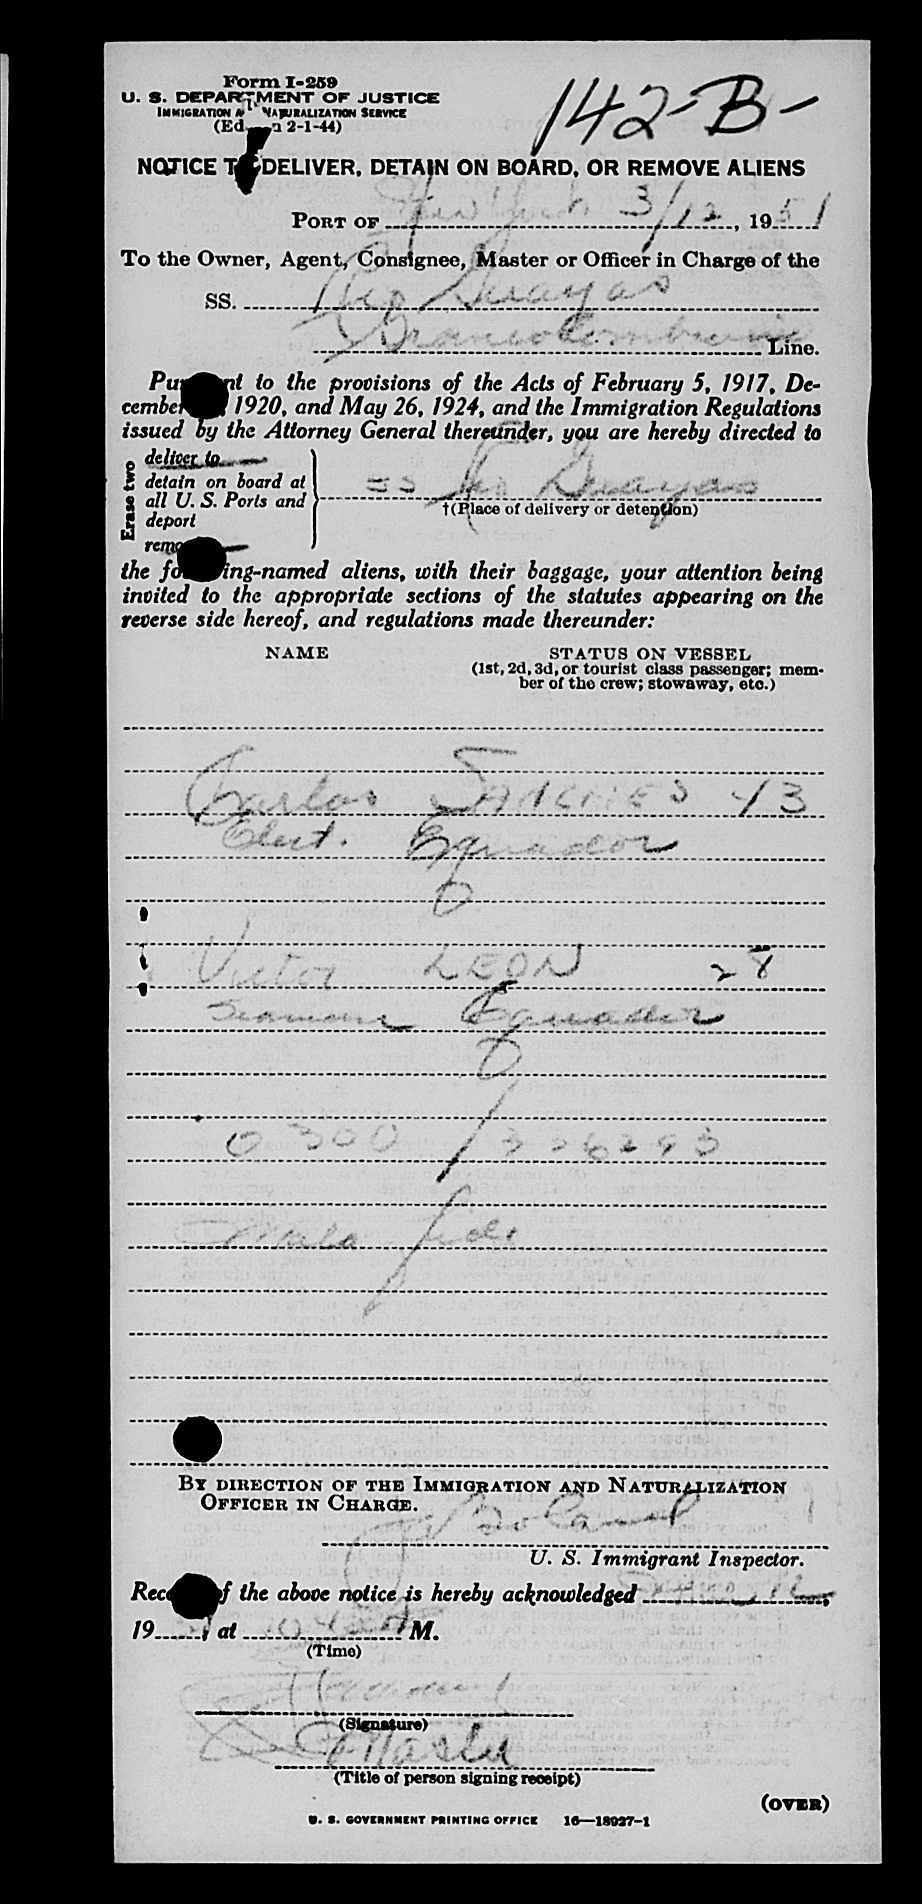 Form I-259
U. S. DEPARTMENT OF JUSTICE
IMMIGRATION A NATURALIZATION SERVICE
(Ed n 2-1-44)
142-B-
NOTICE T DELIVER, DETAIN ON BOARD, OR REMOVE ALIENS
PORT OF New York 3/12, 1951
To the Owner, Agent, Consignee, Master or Officer in Charge of the
SS. Rio Guayas
Line.
Pu nt to the provisions of the Acts of February 5, 1917, De-
cember 1920, and May 26, 1924, and the Immigration Regulations
issued by the Attorney General thereunder, you are hereby directed to
Erase two
deliver to
detain on board at
all U. S. Ports and
deport
remo
SS Rio Guayas
†(Place of delivery or detention)
the fo ing-named aliens, with their baggage, your attention being
invited to the appropriate sections of the statutes appearing on the
reverse side hereof, and regulations made thereunder:
NAME STATUS ON VESSEL
(1st, 2d, 3d, or tourist class passenger; mem-
ber of the crew; stowaway, etc.)
Carlos SANCHES 43
Elect. Equador
Victor LEON 28
Seaman Equador
0300 / 326293
Mala fide
BY DIRECTION OF THE IMMIGRATION AND NATURALIZATION
OFFICER IN CHARGE.
U. S. Immigrant Inspector.
Rece f the above notice is hereby acknowledged
19 1 at M.
(Time)
(Signature)
Master
(Title of person signing receipt)
(OVER)
U. S. GOVERNMENT PRINTING OFFICE 16—18027-1